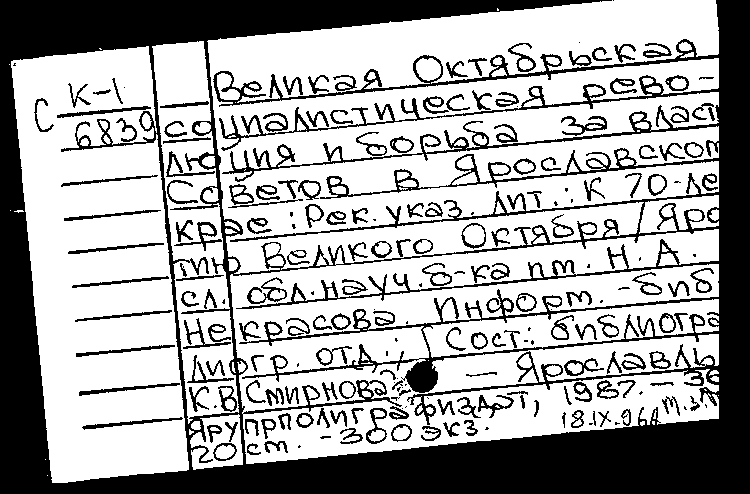 С К-1
6839
Великая Октябрьская
социалистическая рево-
люция и борьба за власт
Советов в Ярославском
крае : Рек. указ. лит. : К 70-ле
тию Великого Октября / Яро
сл. обл. науч. б-ка им. Н. А.
Некрасова. Информ.-биб
лиогр. отд.; [Сост.: библиогра
К.В. Смирнова — Ярославль
Ярупрполиграфиздат, 1987. — 36
20 см. - 300 экз.
18.IX.96